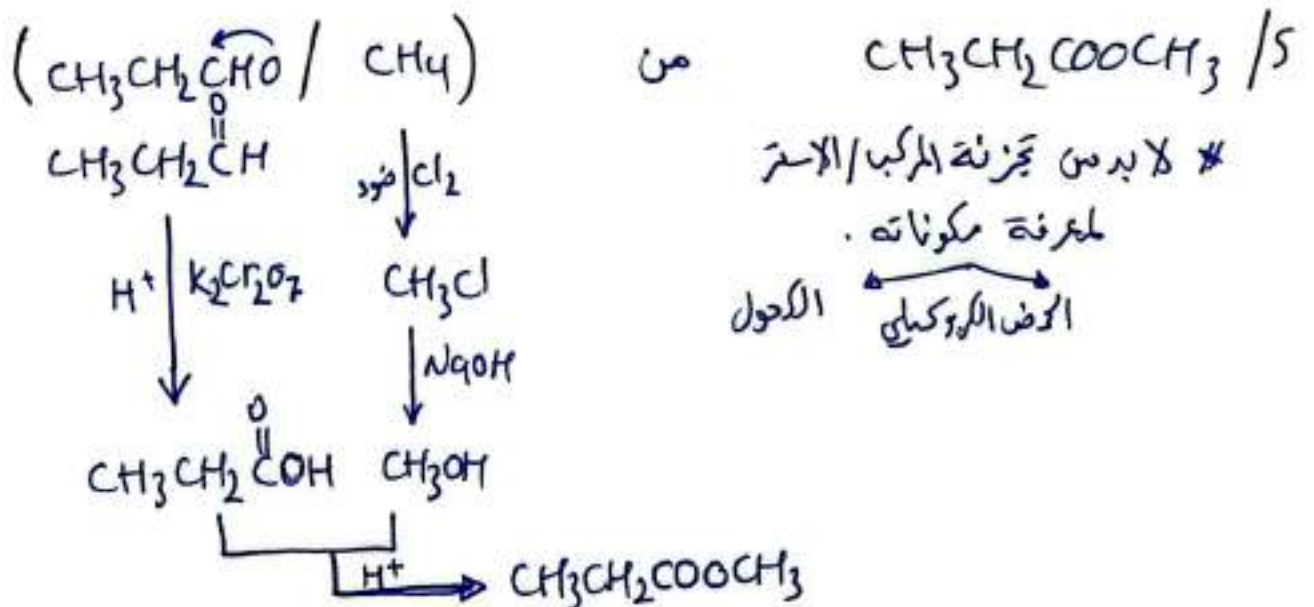 CH₃CH₂COOCH₃ /5 من (CH₃CH₂CHO / CH₄)
* لا بد من تجزئة المركب/الاستر
لمعرفة مكوناته .
الحمض الكربوكسيلي الكحول
O
CH₃CH₂CH
ضوء Cl₂
H⁺ K₂Cr₂O₇
CH₃Cl
NaOH
O
CH₃CH₂COH CH₃OH
H⁺ CH₃CH₂COOCH₃